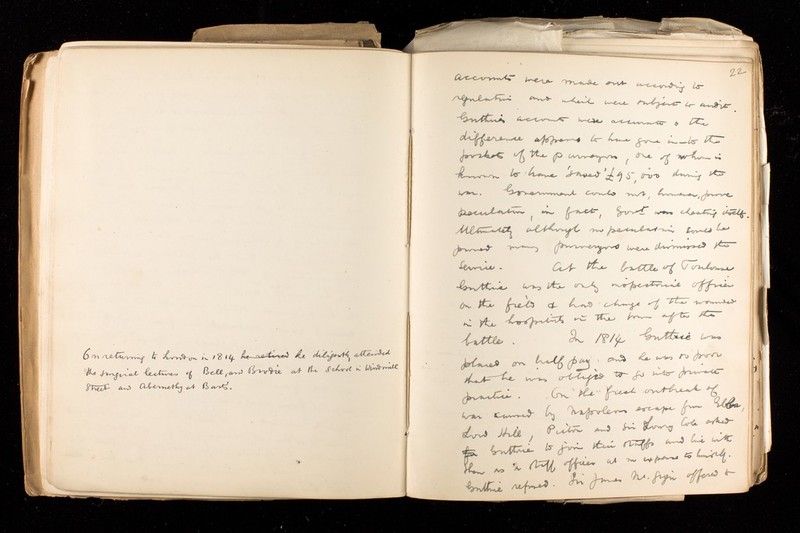 On returning to London in 1814 he diligently attended
the surgical lectures of Bell, and Brodie at the School in Windmill
Street and Abernethy at Bart's.
22
accounts were made out according to
regulation and which were subject to audit.
Guthrie's accounts were accurate & the
difference appears to have gone into the
pockets of the purveyors, one of whom is
known to have 'saved' £95,000 during the
war. Government could not, however, prove
peculation, in fact, Govt was cheating itself.
Ultimately although no peculation could be
proved many purveyors were dismissed the
Service. At the battle of Toulouse
Guthrie was the only inspectorial officer
on the field & had charge of the wounded
in the hospitals in the town after the
battle. In 1814 Guthrie was
placed on half pay and he was so poor
that he was obliged to go into private
practice. On the fresh outbreak of
war caused by Napoleon's escape from Elba,
Lord Hill, Picton and Sir Lowry Cole asked
Guthrie to join their staffs and live with
them as a staff officer at no expense to himself.
Guthrie refused. Sir James McGrigor offered to